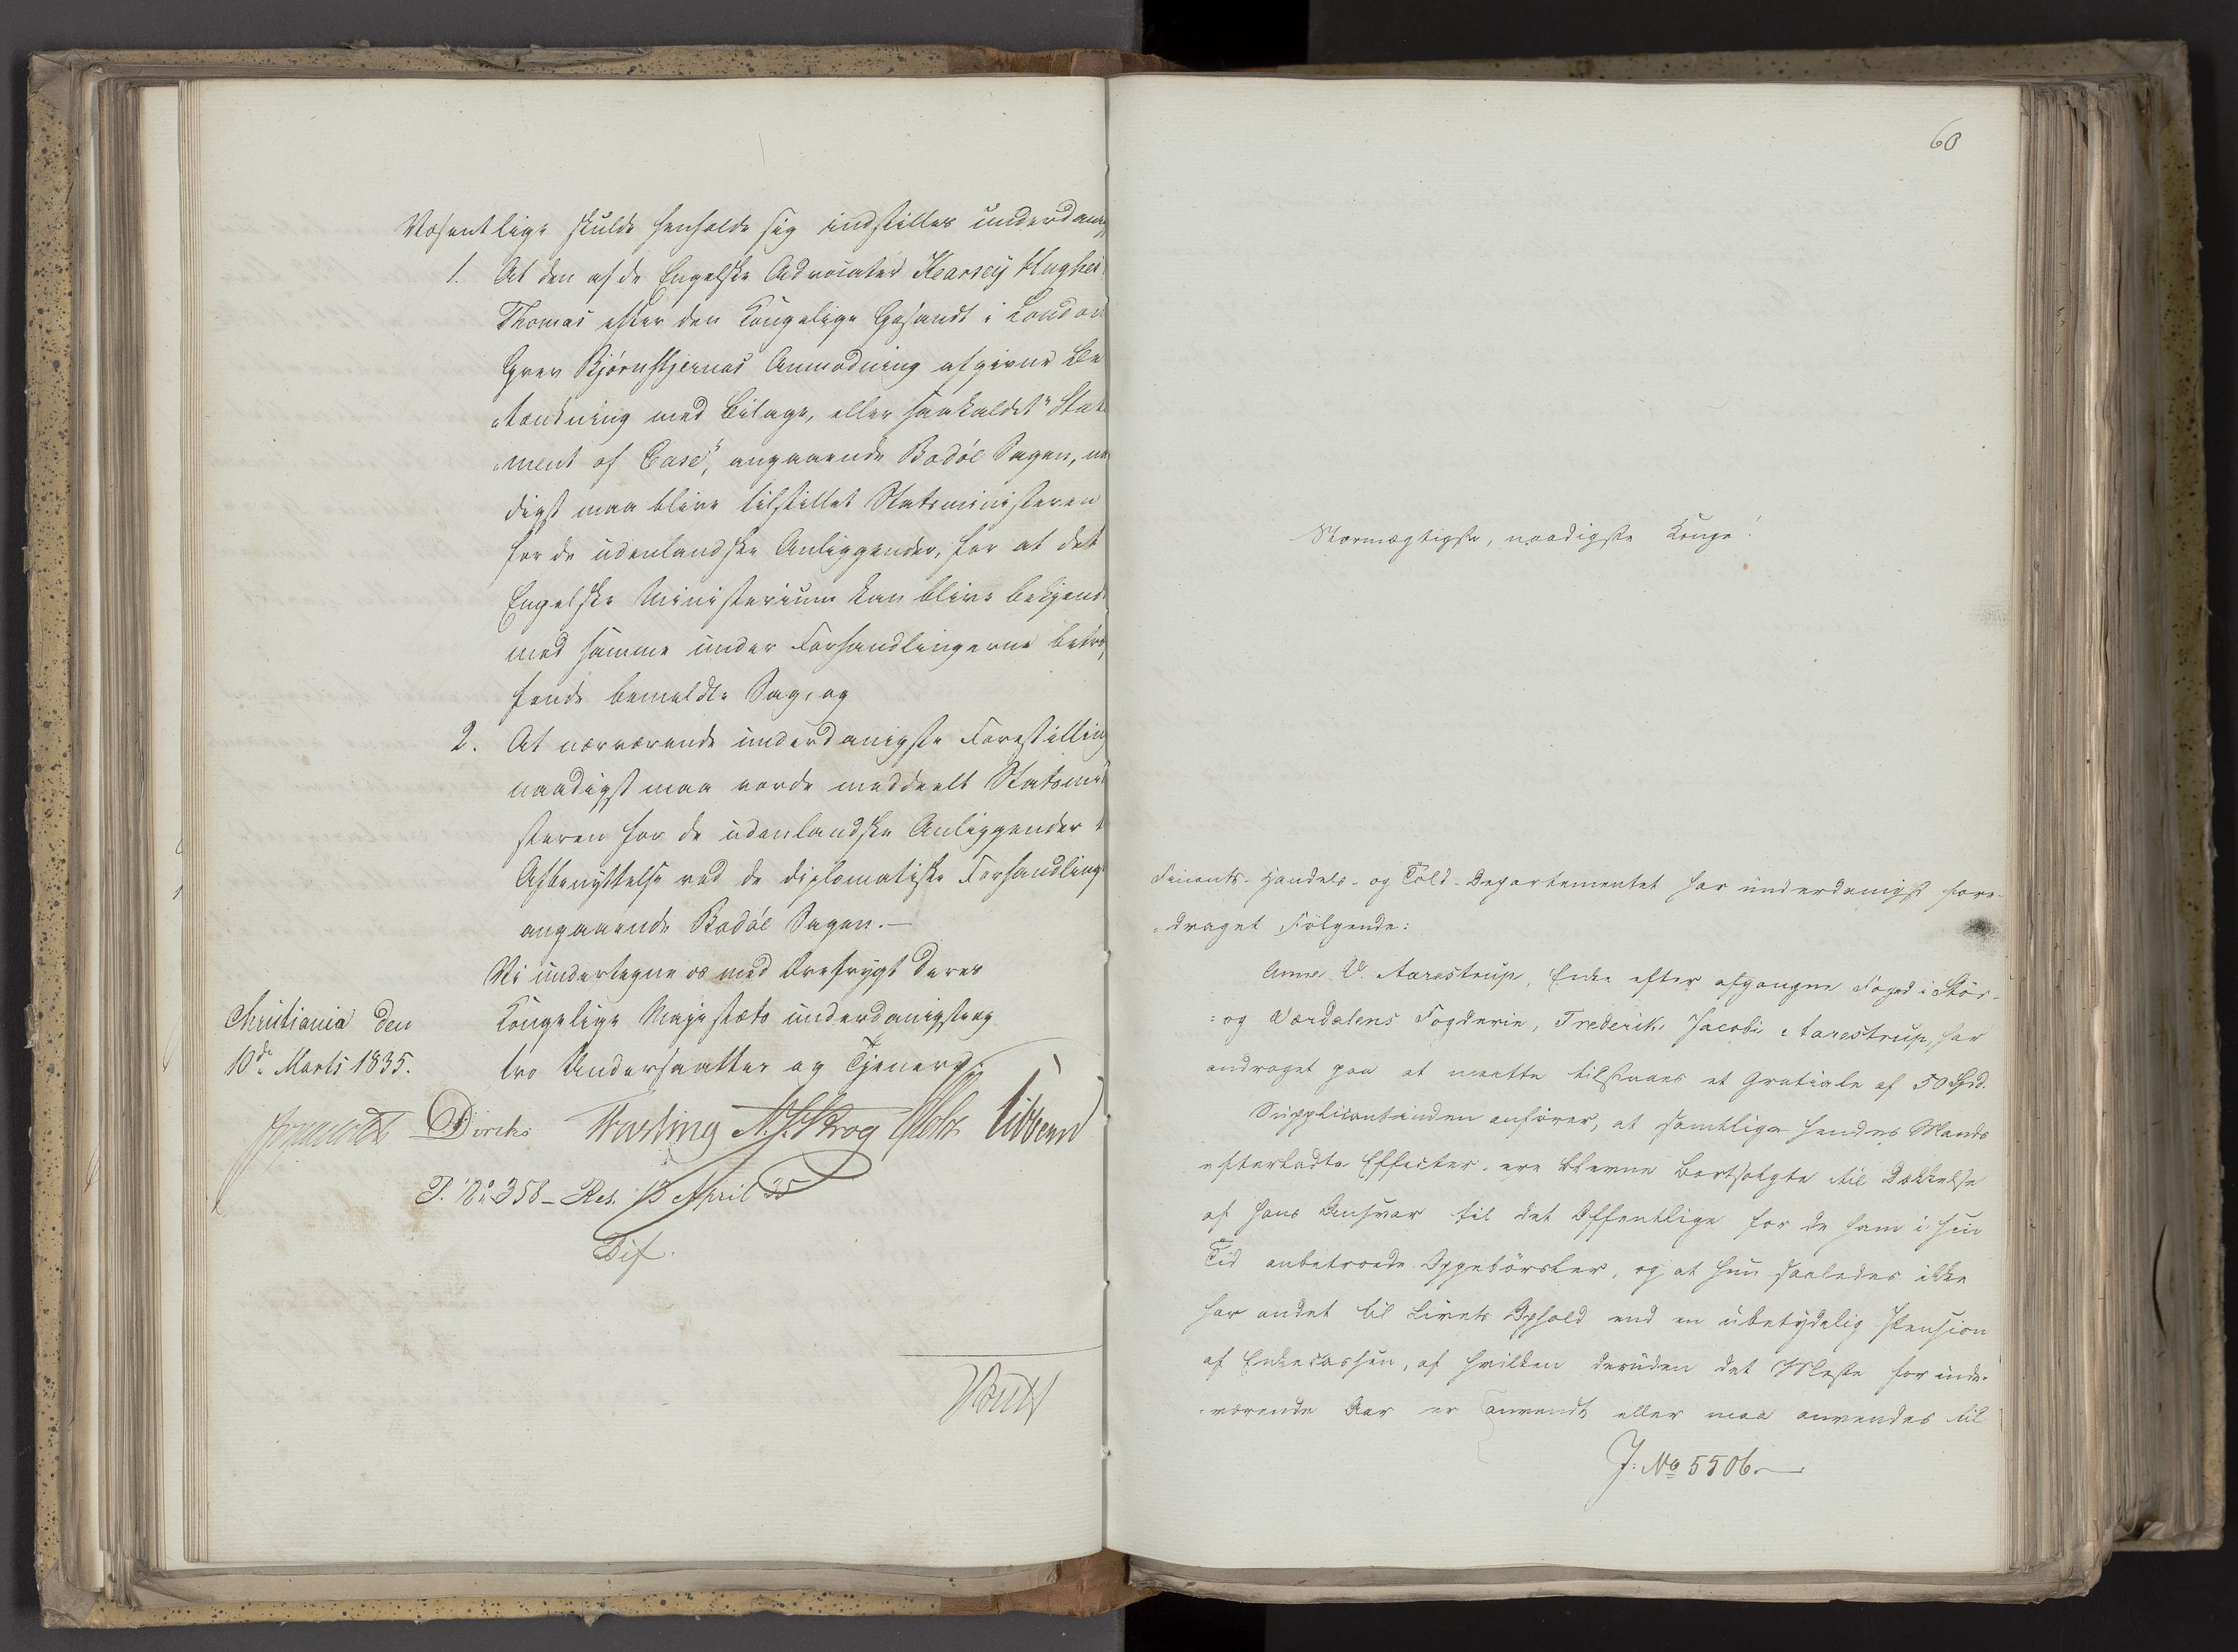 Væsentlige skulde henholde sig indstilles underdanig
1. At den af de Engelske Advocater Kearsey Hughes
Thomas efter den Kongelige Gesandt i London
Grev Bjørnstjernas Anmodning afgivne Be
tænkning med Bilage, eller saakaldet "State
ment of Case", angaaende Bodöe Sagen, na
digst maa blive tilstillet Statsministeren
for de udenlandske Anliggender, for at det
Engelske Ministerium kan blive bekjendt
med samme under Forhandlingerne betræf
fende bemeldte Sag, og
2. At nærværende underdanigste Forestilling
naadigst maa vorde meddeelt Statsmini
steren for de udenlandske Anliggender t
Afbenyttelse ved de diplomatiske Forhandlinge
angaaende Bodöe Sagen.—
Vi undertegne os med Ærefrygt Deres
Kongelige Majestæts underdanigste og
tro Undersaatter og Tjenere.
Christiania den
10de Marts 1835.
Diriks Fasting N. J. Krog Holst Vibe
P. No 358 – Res. 13 April 35
60
Stormægtigste, naadigste Konge!
Finants- Handels- og Told-Departementet har underdanigst fore-
=draget Følgende:
Anne V. Aarestrup, Enke efter afgangne Foged i Stör-
=og Værdalens Fogderie, Frederik Jacobi Aarestrup, har
andraget paa at maatte tilstaaes et Gratiale af 50 Spd.
Supplicantinden anfører, at samtlige hendes Mands
efterladte Effecter ere blevne bortsolgte til Dækkelse
af hans Ansvar til det Offentlige for de ham i sin
Tid anbetroede Oppebörsler, og at hun saaledes ikke
har andet til Livets Ophold end en ubetydelig Pension
af Enkecassen, af hvilken desuden det Meste for inde-
=værende Aar er anvendt eller maa anvendes til
J: No 5506.—